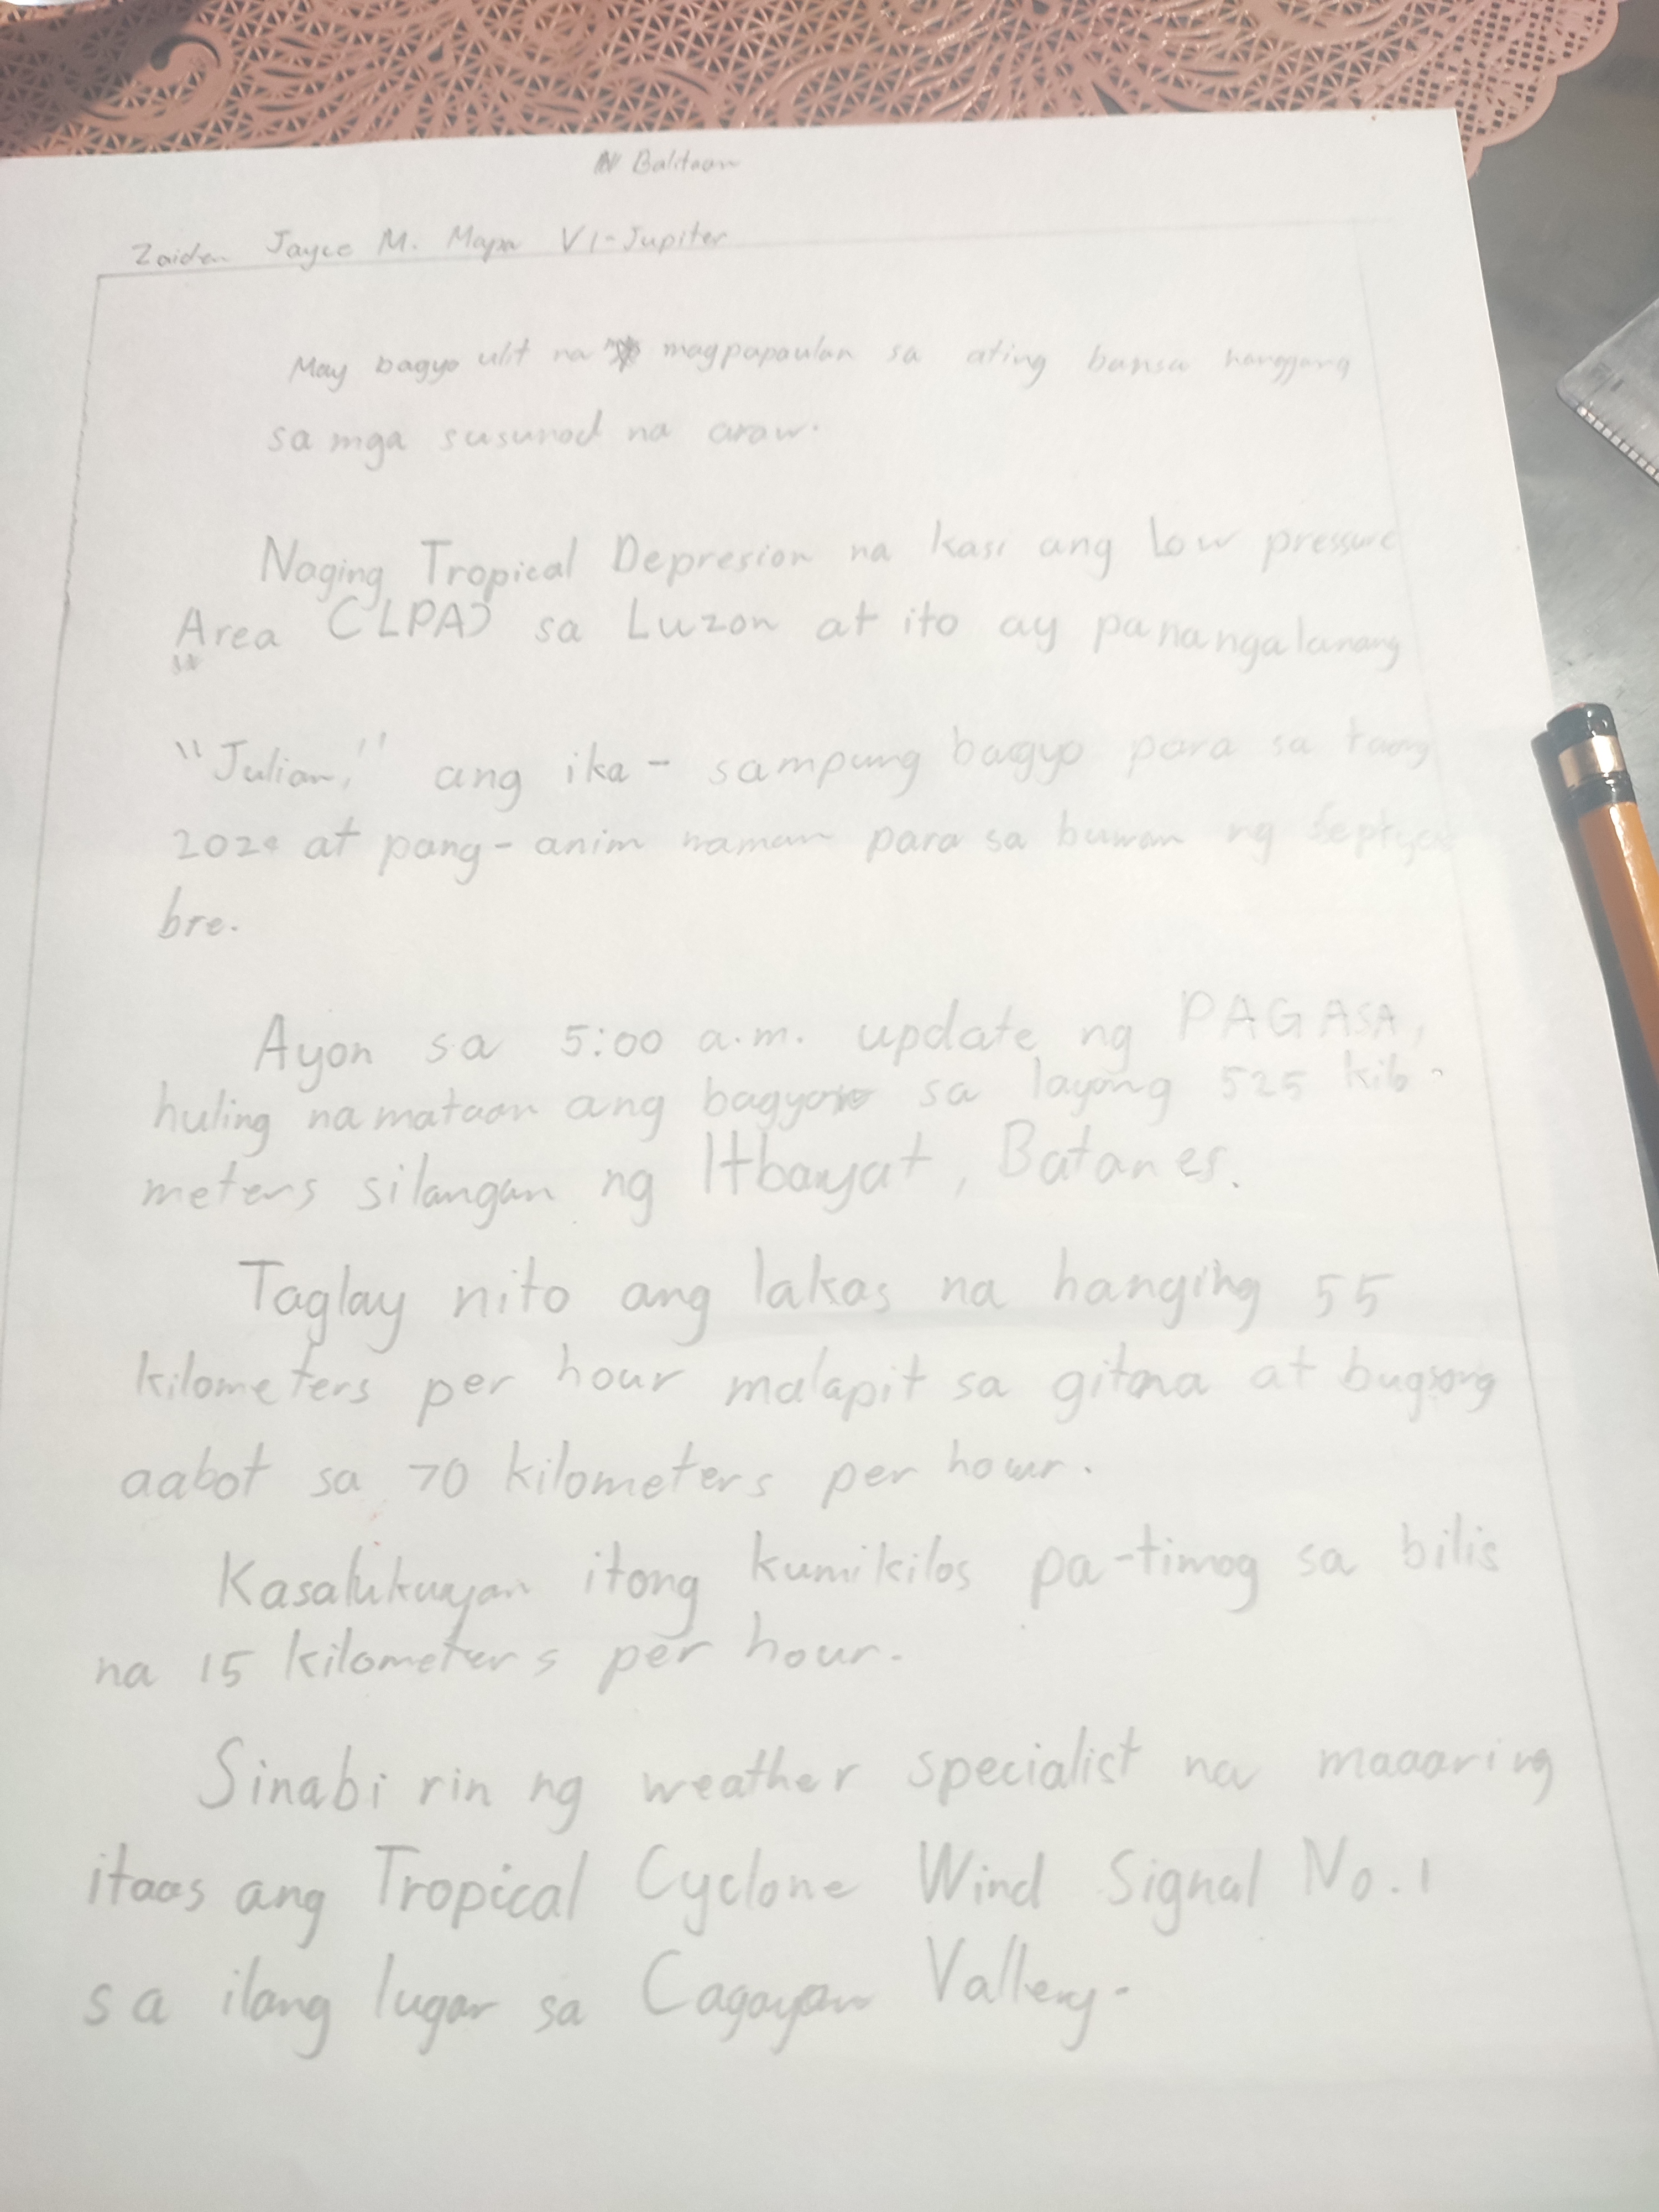 Balitaan
Zaiden Jayce M. Mapa VI-Jupiter
May bagyo ulit na magpapaulan sa ating bansa hanggang
sa mga susunod na araw.
Naging Tropical Depresion na kasi ang Low pressure
Area (LPA) sa Luzon at ito ay panangalanang
"Julian," ang ika- sampung bagyo para sa taong
at pang-anim naman para sa buwan ng
bre.
Ayon sa 5:00 a.m. update ng PAGASA,
huling namataan ang bagyo sa layong 525 kilo-
meters silangan ng Itbayat, Batanes.
Taglay nito ang lakas na hanging 55
kilometers per hour malapit sa gitna at bugsong
aabot sa 70 kilometers per hour.
Kasalukuyan itong kumikilos pa-timog sa bilis
na 15 kilometers per hour.
Sinabi rin ng weather specialist na maaaring
itaas ang Tropical Cyclone Wind Signal No. 1
sa ilang lugar sa Cagayan Valley.